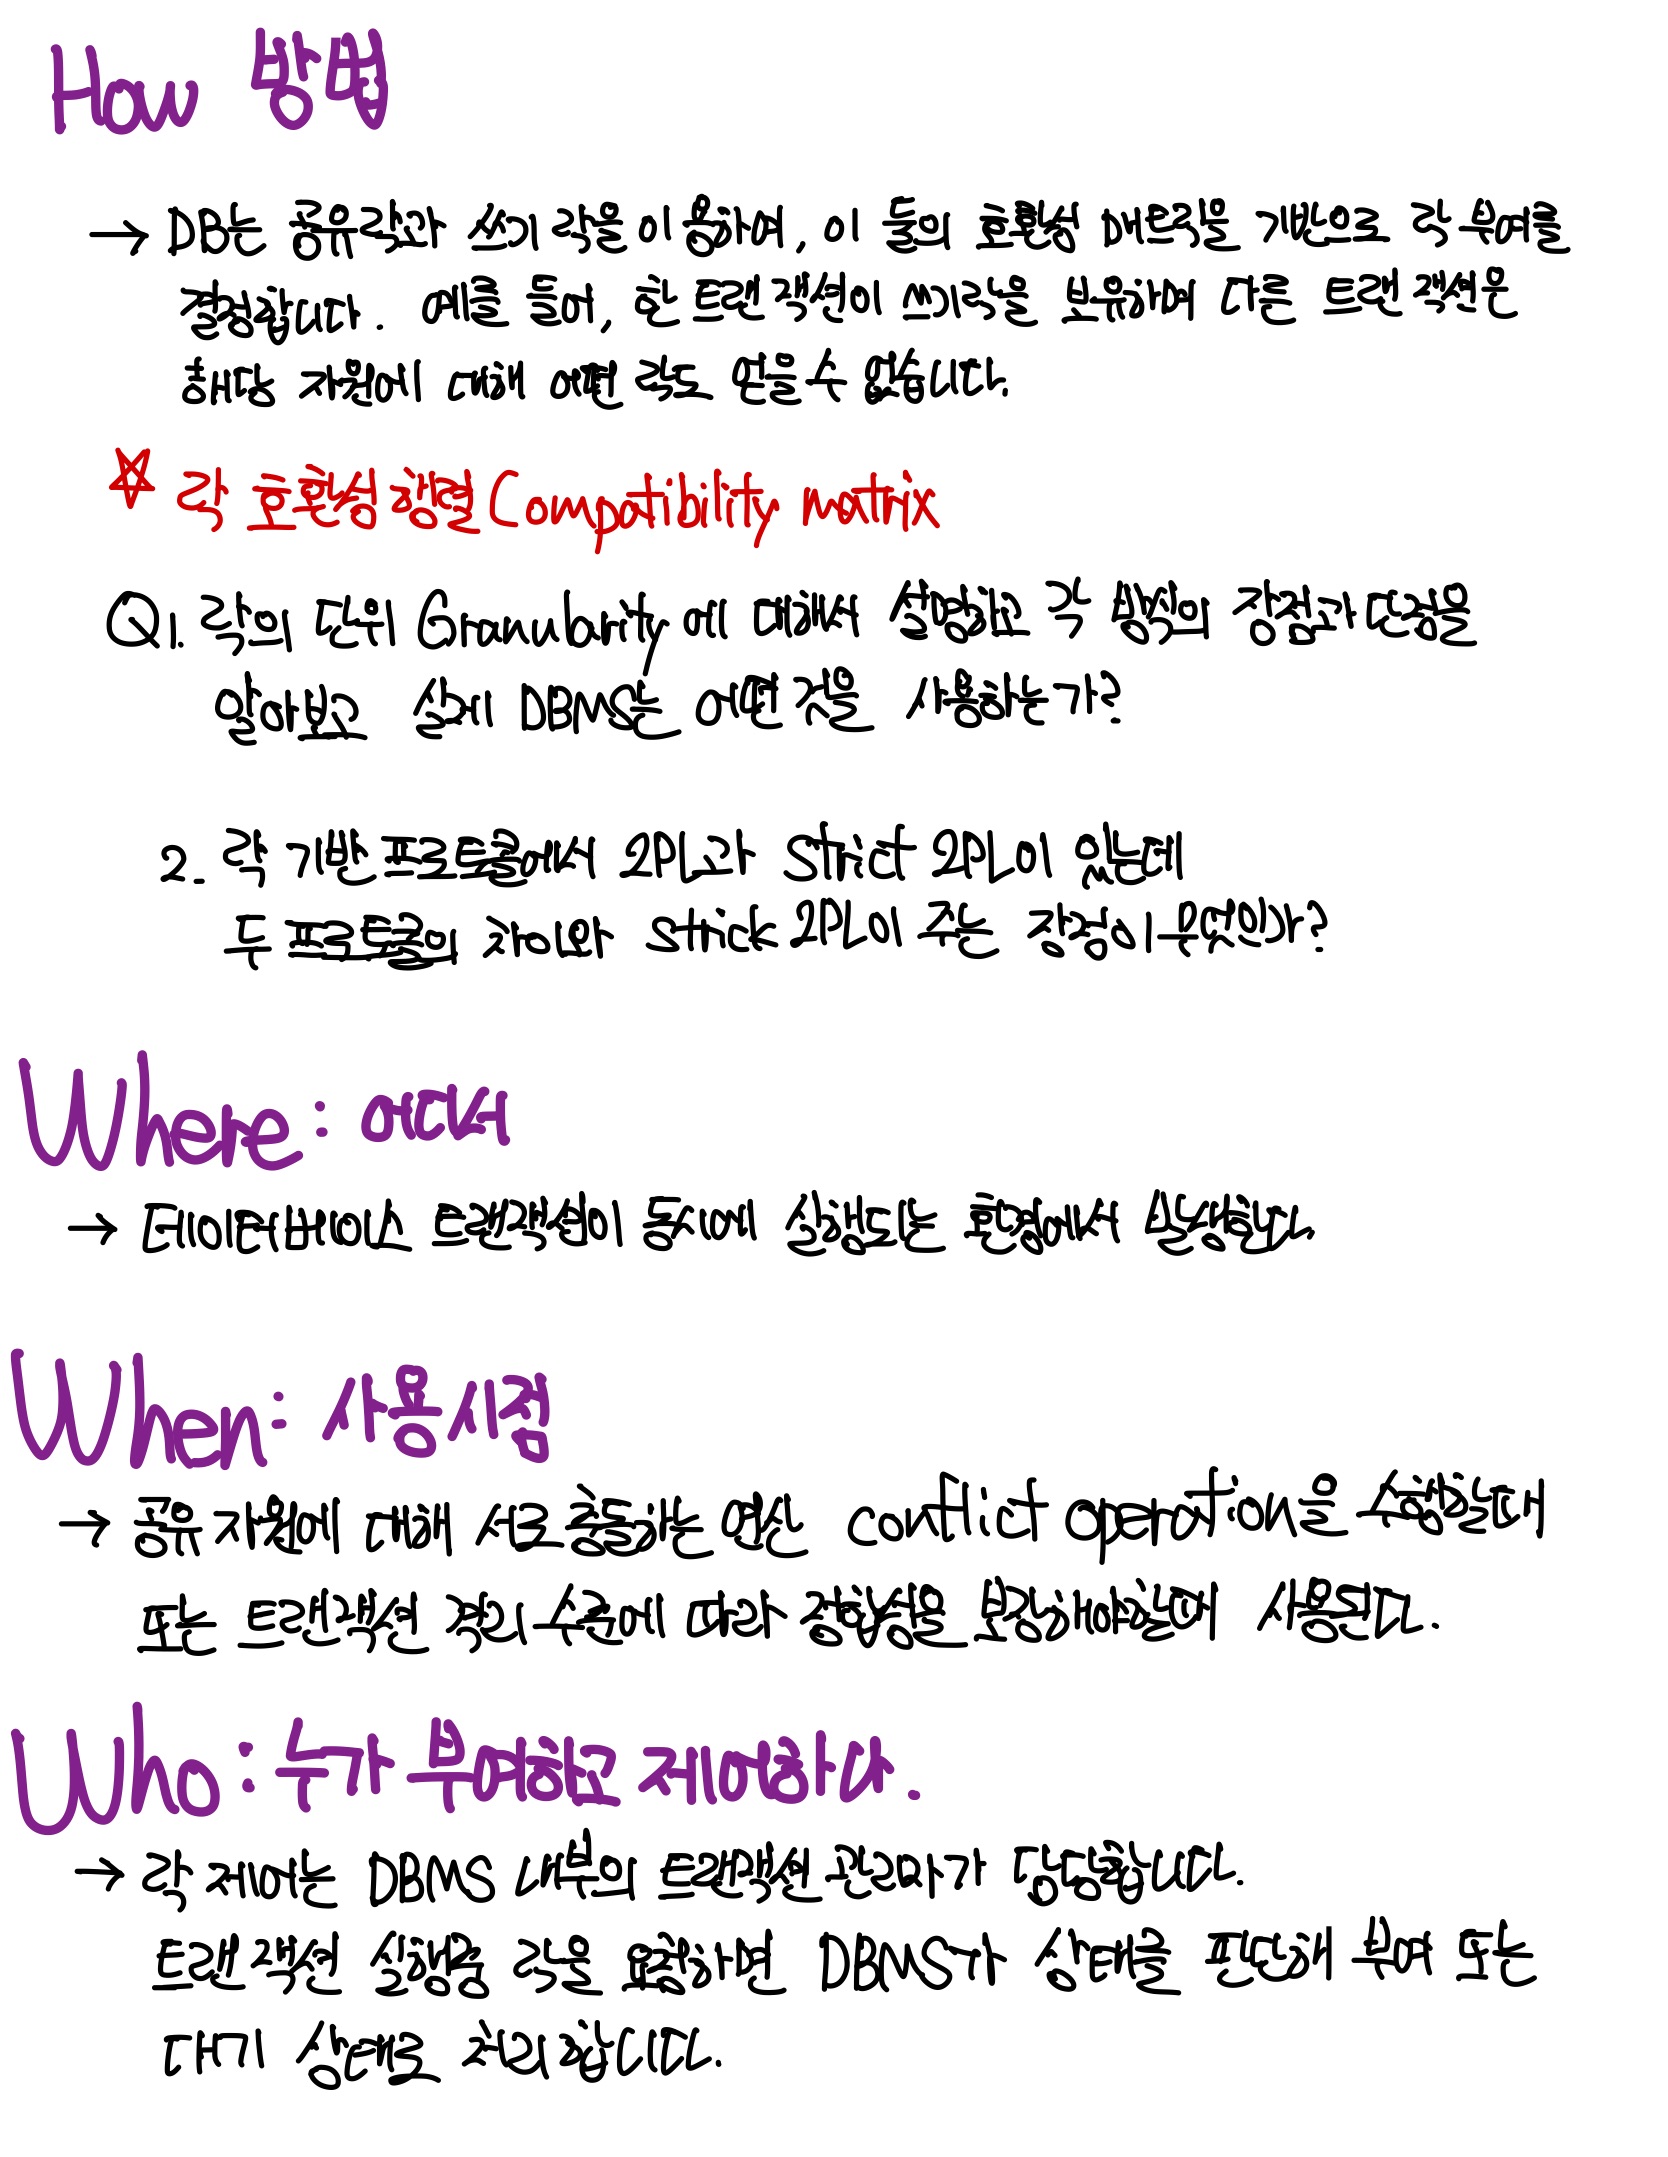 How 방법
→ DB는 공유락과 쓰기 락을 이용하여, 이 둘의 호환성 매트릭을 기반으로 락 부여를
결정합니다. 예를 들어, 한 트랜잭션이 쓰기락을 보유하며 다른 트랜잭션은
해당 자원에 대해 어떤 락도 얻을 수 없습니다.
☆ 락 호환성 행렬 Compatibility matrix
Q1. 락의 단위 Granularity 에 대해서 설명하고 각 방식의 장점과 단점을
알아보고 실제 DBMS는 어떤 것을 사용하는가?
2. 락 기반 프로토콜에서 2PL과 Strict 2PL이 있는데
두 프로토콜의 차이와 Strick 2PL이 주는 장점이 무엇인가?
Where : 어디서
→ 데이터베이스 트랜잭션이 동시에 실행되는 환경에서
When : 사용시점
→ 공유 자원에 대해 서로 충돌하는 연산 conflict operation을 수행할때
또는 트랜잭션 격리 수준에 따라 정합성을 보장해야할때 사용된다.
Who : 누가 부여하고 제어하나.
→ 락 제어는 DBMS 내부의 트랜잭션 관리자가 담당합니다.
트랜잭션 실행중 락을 요청하면 DBMS가 상태를 판단해 부여 또는
대기 상태로 처리합니다.